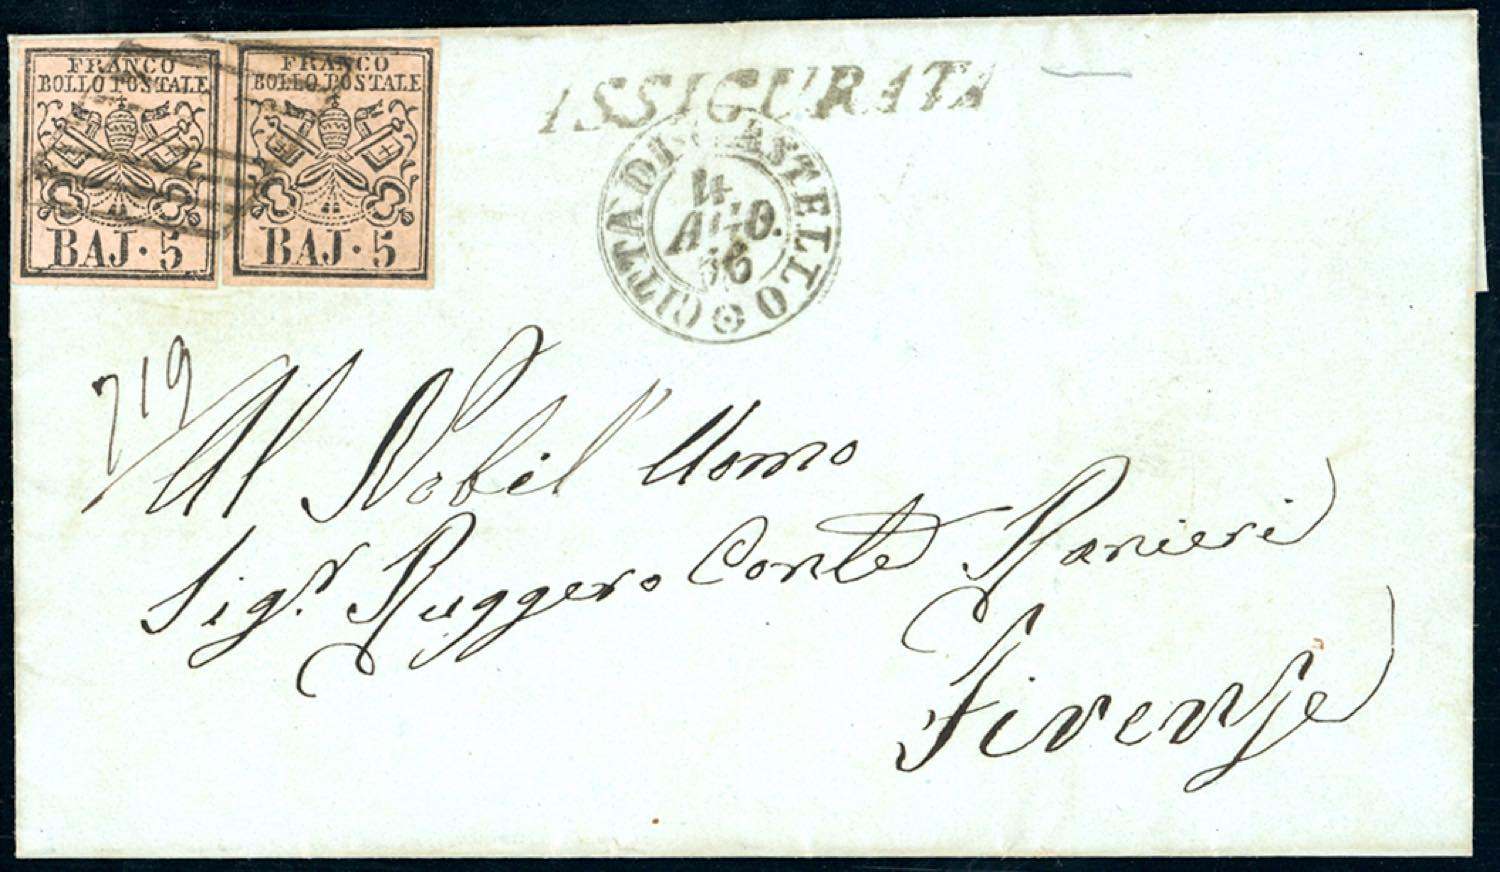 FRANCO
BOLLO POSTALE
BAJ · 5
FRANCO
BOLLO POSTALE
BAJ · 5
ASSICURATA
CITTA DI CASTELLO
4
AGO.
56
719
Al Nobil' Uomo
Sig.r Ruggero Conte Ranieri
Firenze